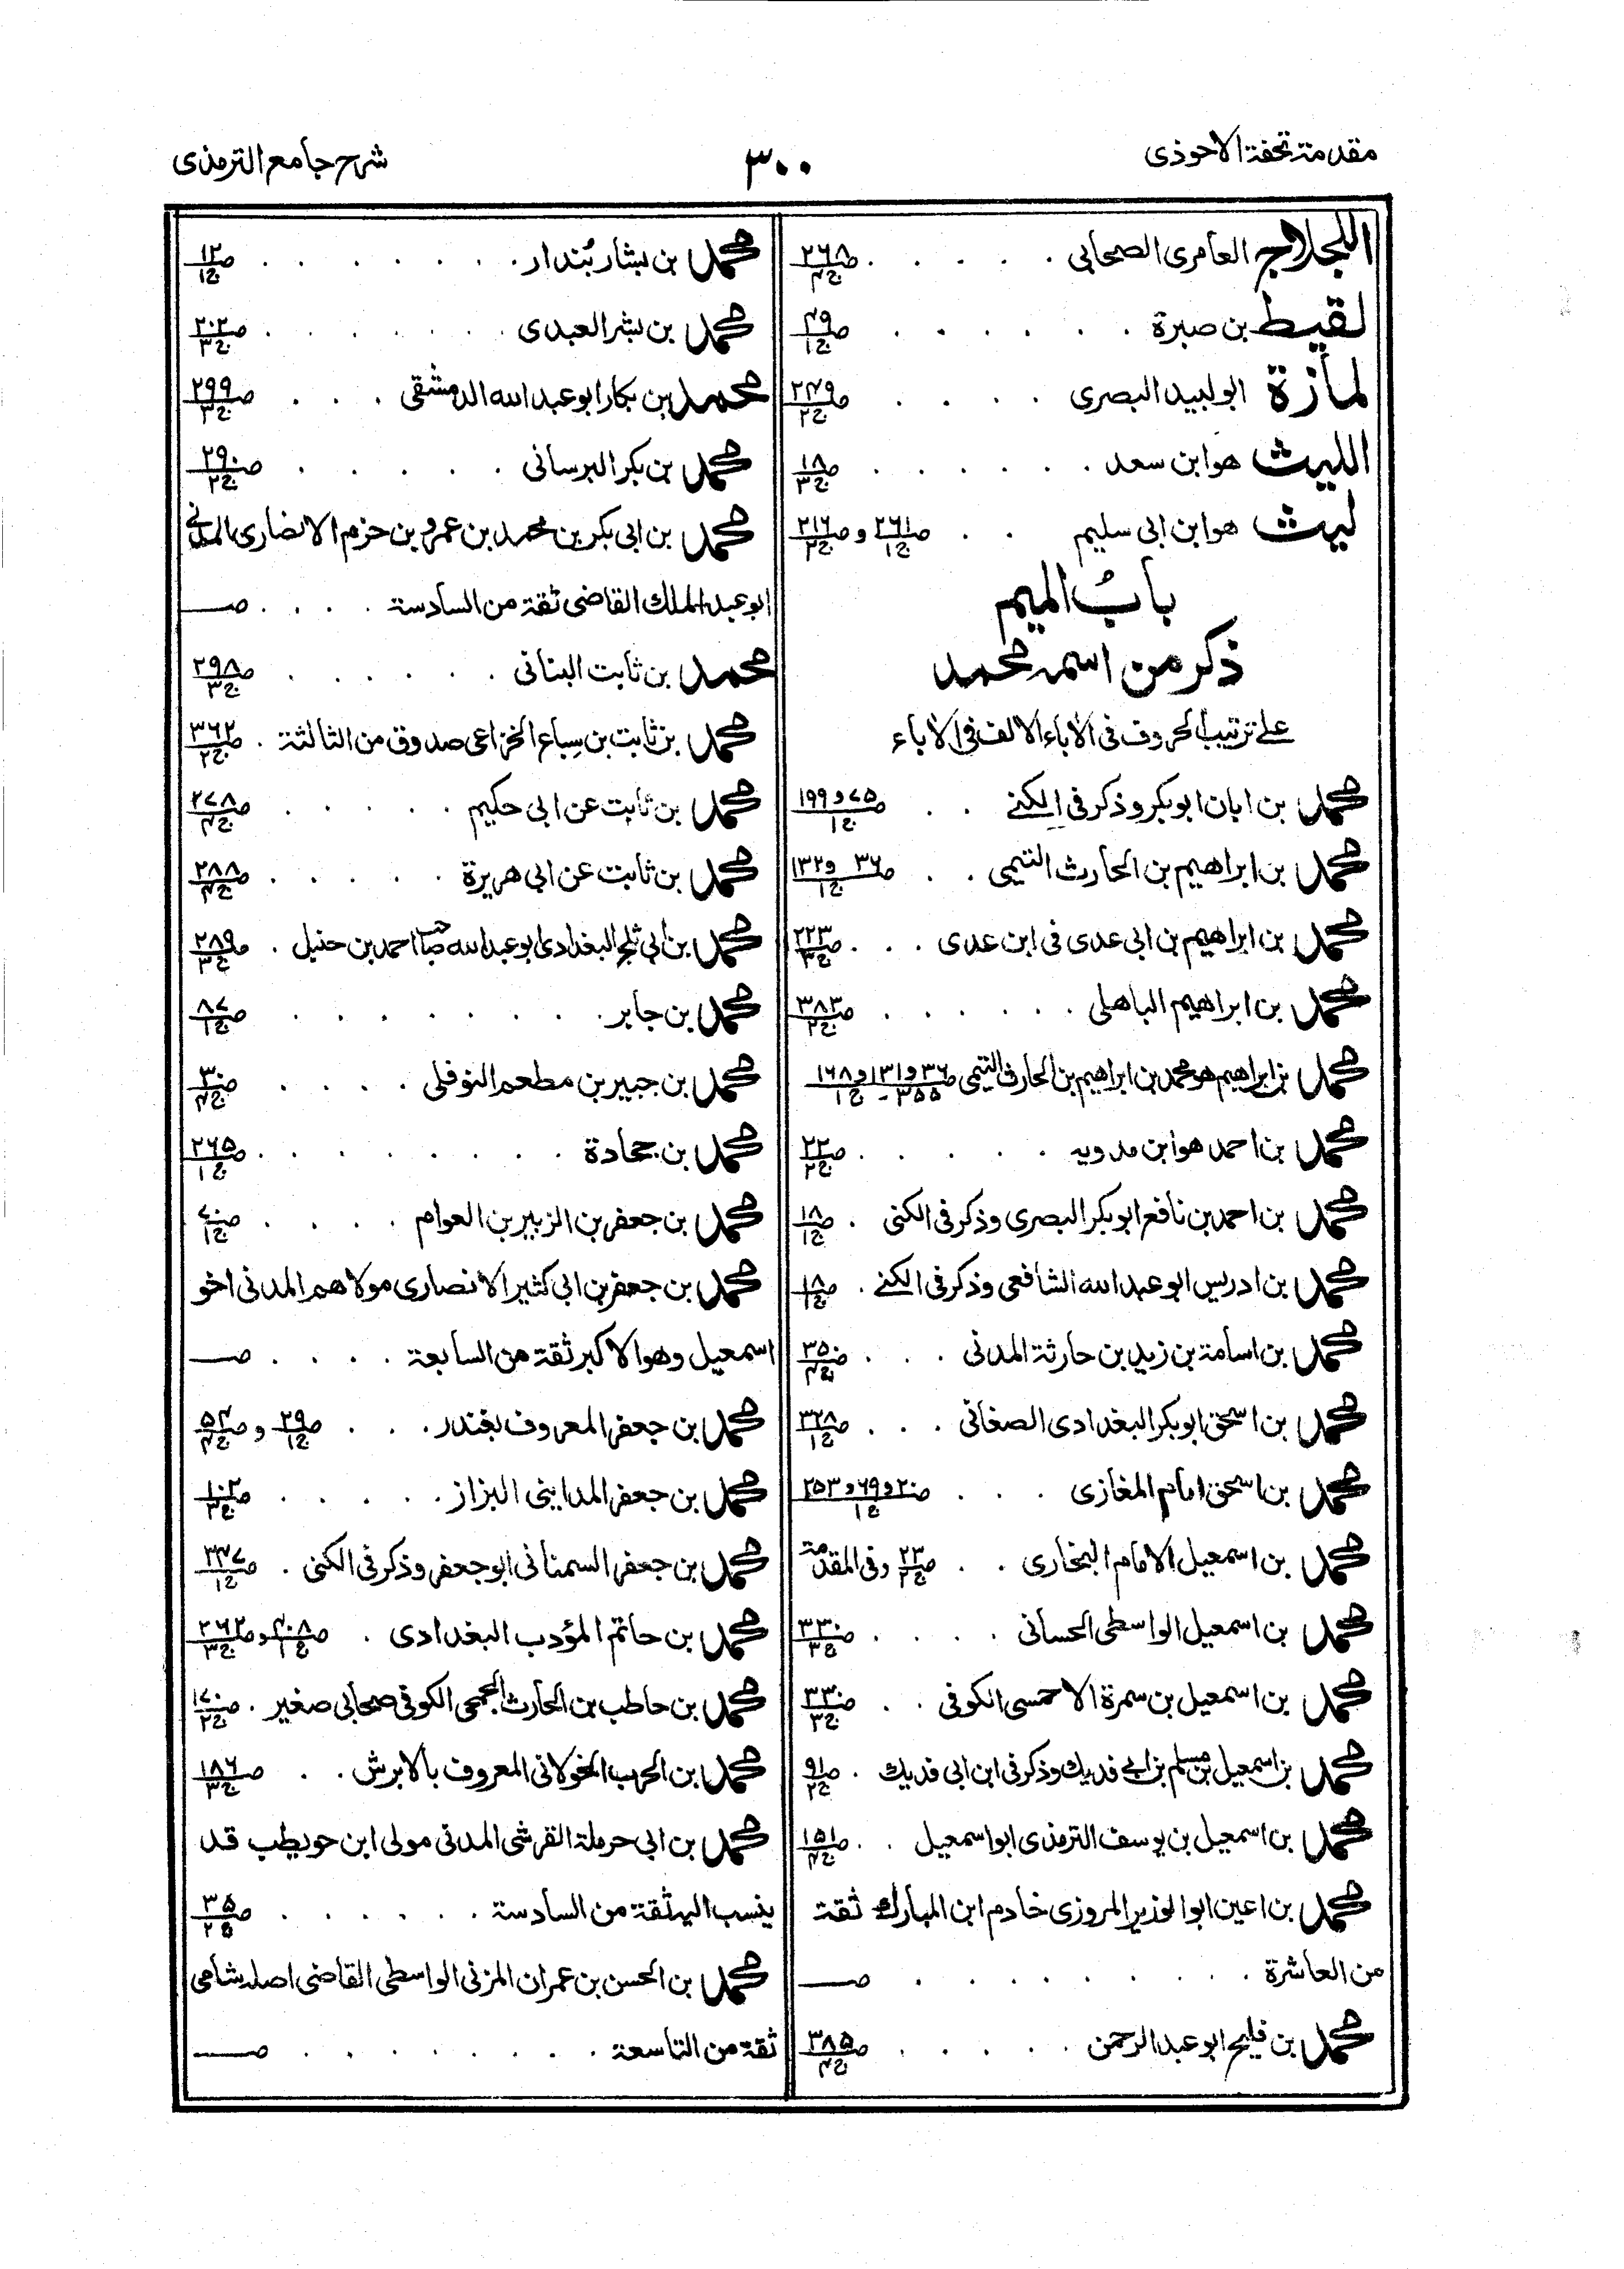 مقدمة تحفة الاحوذی
٣٠٠
شرح جامع الترمذی
اللجلاج العامری الصحابی . . . . . ص٢٦٨ ج٤
لقيط بن صبرة . . . . . . ص٤٩ ج١
لمازة ابو لبيد البصری . . . . ص٢٤٩ ج٢
الليث هو ابن سعد . . . . . . ص١٨ ج٣
ليث هو ابن ابی سليم . . ص٢٦١ ج١ و ص٢١٦ ج٣
باب الميم
ذكر من اسمه محمد
علی ترتيب الحروف فی الاٰباء الالف فی الاٰباء
محمد بن ابان ابو بكر و ذكر فی الكنے . . ص٧٥ و ١٩٩ ج١
محمد بن ابراهيم بن الحارث التيمی . . ص٣٦ و ١٣٢ ج١
محمد بن ابراهيم بن ابی عدی فی ابن عدی . . . ص٢٢٣ ج٣
محمد بن ابراهيم الباهلی . . . . . . ص٣٨٣ ج٢
محمد بن ابراهيم هو محمد بن ابراهيم بن الحارث التيمی ص٣٦ و ١٣١ و ١٦٨ - ٣٥٥ ج١
محمد بن احمد هو ابن مدويه . . . . . ص٢٢ ج٢
محمد بن احمد بن نافع ابو بكر البصری و ذكر فی الكنی . ص١٨ ج١
محمد بن ادريس ابو عبد الله الشافعی و ذكر فی الكنے . ص١٨ ج١
محمد بن اسامة بن زيد بن حارثة المدنی . . . ص٣٥٠ ج٤
محمد بن اسحق ابو بكر البغدادی الصغانی . . . ص٣٢٨ ج١
محمد بن اسحق امام المغازی . . . ص٢٠ و ٦٩ و ٢٥٣ ج١
محمد بن اسمعيل الامام البخاری . . ص٢٣ ج٢ و فی المقدمة
محمد بن اسمعيل الواسطی الحسانی . . . . ص٣٣٠ ج٣
محمد بن اسمعيل بن سمرة الاحمسی الكوفی . . ص٣٣٠ ج٣
محمد بن اسمعيل بن مسلم بن ابی فديك و ذكر فی ابن ابی فديك . ص٩١ ج٢
محمد بن اسمعيل بن يوسف الترمذی ابو اسمعيل . . ص١٥١ ج٤
محمد بن اعين ابو الوزير المروزی خادم ابن المبارك ثقة
من العاشرة . . . . . . . . . صــ
محمد بن فليح ابو عبد الرحمن . . . . . ص٣٨٥ ج٤
محمد بن بشار بُندار . . . . . . . ص١٢ ج١
محمد بن بشر العبدی . . . . . . . ص٢٠٢ ج٣
محمد بن بكار ابو عبد الله الدمشقی . . . ص٢٩٩ ج٣
محمد بن بكر البرسانی . . . . . ص٢٩٠ ج٢
محمد بن ابی بكر بن محمد بن عمرو بن حزم الانصاری المدنی
ابو عبد الملك القاضی ثقة من السادسة . . . . صــ
محمد بن ثابت البنانی . . . . . . ص٢٩٨ ج٣
محمد بن ثابت بن سباع الخزاعی صدوق من الثالثة . ص٣٦٢ ج٢
محمد بن ثابت عن ابی حكيم . . . . . ص٢٧٨ ج٤
محمد بن ثابت عن ابی هريرة . . . . . ص٢٨٨ ج٤
محمد بن ابی ثلج البغدادی ابو عبد الله صاحب احمد بن حنبل . ص٢٨٩ ج٣
محمد بن جابر . . . . . . . . ص٨٧ ج١
محمد بن جبير بن مطعم النوفلی . . . . ص٣٠ ج٤
محمد بن جحادة . . . . . . . . ص٢٦٥ ج١
محمد بن جعفر بن الزبير بن العوام . . . . ص٧٠ ج١
محمد بن جعفر بن ابی كثير الانصاری مولاهم المدنی اخو
اسمعيل و هو الاكبر ثقة من السابعة . . . . صــ
محمد بن جعفر المعروف بغندر . . . ص٢٩ ج١ و ص٥٤ ج٤
محمد بن جعفر المداينی البزاز . . . . . ص١٠٢ ج٣
محمد بن جعفر السمنانی ابو جعفر و ذكر فی الكنی . ص٣٤٧ ج١
محمد بن حاتم المؤدب البغدادی . ص٤٠٨ ج١ و ص٢٦٢ ج٣
محمد بن حاطب بن الحارث الجمحی الكوفی صحابی صغير . ص١٧٠ ج٢
محمد بن الحرب الخولانی المعروف بالابرش . . ص١٨٦ ج٣
محمد بن ابی حرملة القرشی المدنی مولی ابن حويطب قد
ينسب اليه ثقة من السادسة . . . . . . ص٣٥ ج٢
محمد بن الحسن بن عمران المزنی الواسطی القاضی اصله شامی
ثقة من التاسعة . . . . . . . . صــ